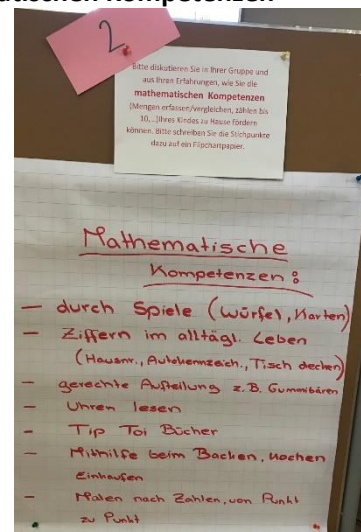 mathematischen Kompetenzen
2
Bitte diskutieren Sie in Ihrer Gruppe und
aus Ihren Erfahrungen, wie Sie die
mathematischen Kompetenzen
(Mengen erfassen/vergleichen, zählen bis
10,...)Ihres Kindes zu Hause fördern
können. Bitte schreiben Sie die Stichpunkte
dazu auf ein Flipchartpapier.
Mathematische
Kompetenzen:
- durch Spiele (Würfel, Karten)
- Ziffern im alltägl. Leben
(Hausnr., Autokennzeich., Tisch decken)
- gerechte Aufteilung z.B. Gummibären
- Uhren lesen
- Tip Toi Bücher
- Mithilfe beim Backen, Kochen
Einkaufen
- Malen nach Zahlen, von Punkt
zu Punkt